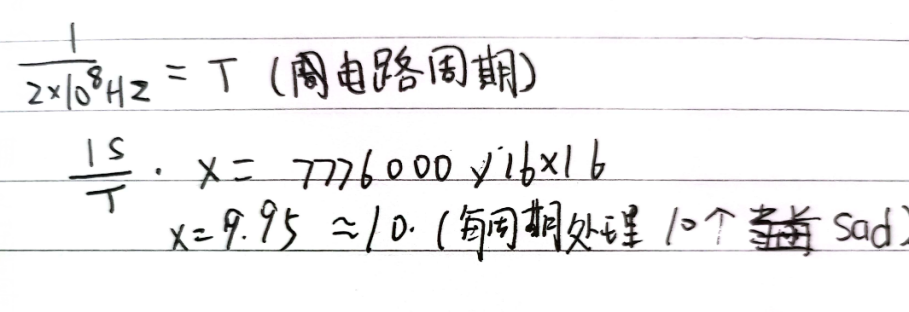 1/(2×10⁸Hz) = T (周电路周期)
1S/T · x = 7776000 × 16×16
x = 9.95 ≈ 10. (每周期处理 10个 Sad)